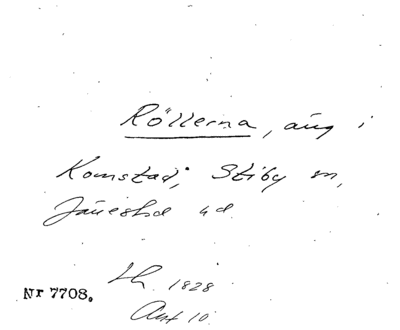 Röllerna, äng i
Komstad, Stiby sn,
Järestad hd.
Lh. 1828
Akt 10
Nr 7708.